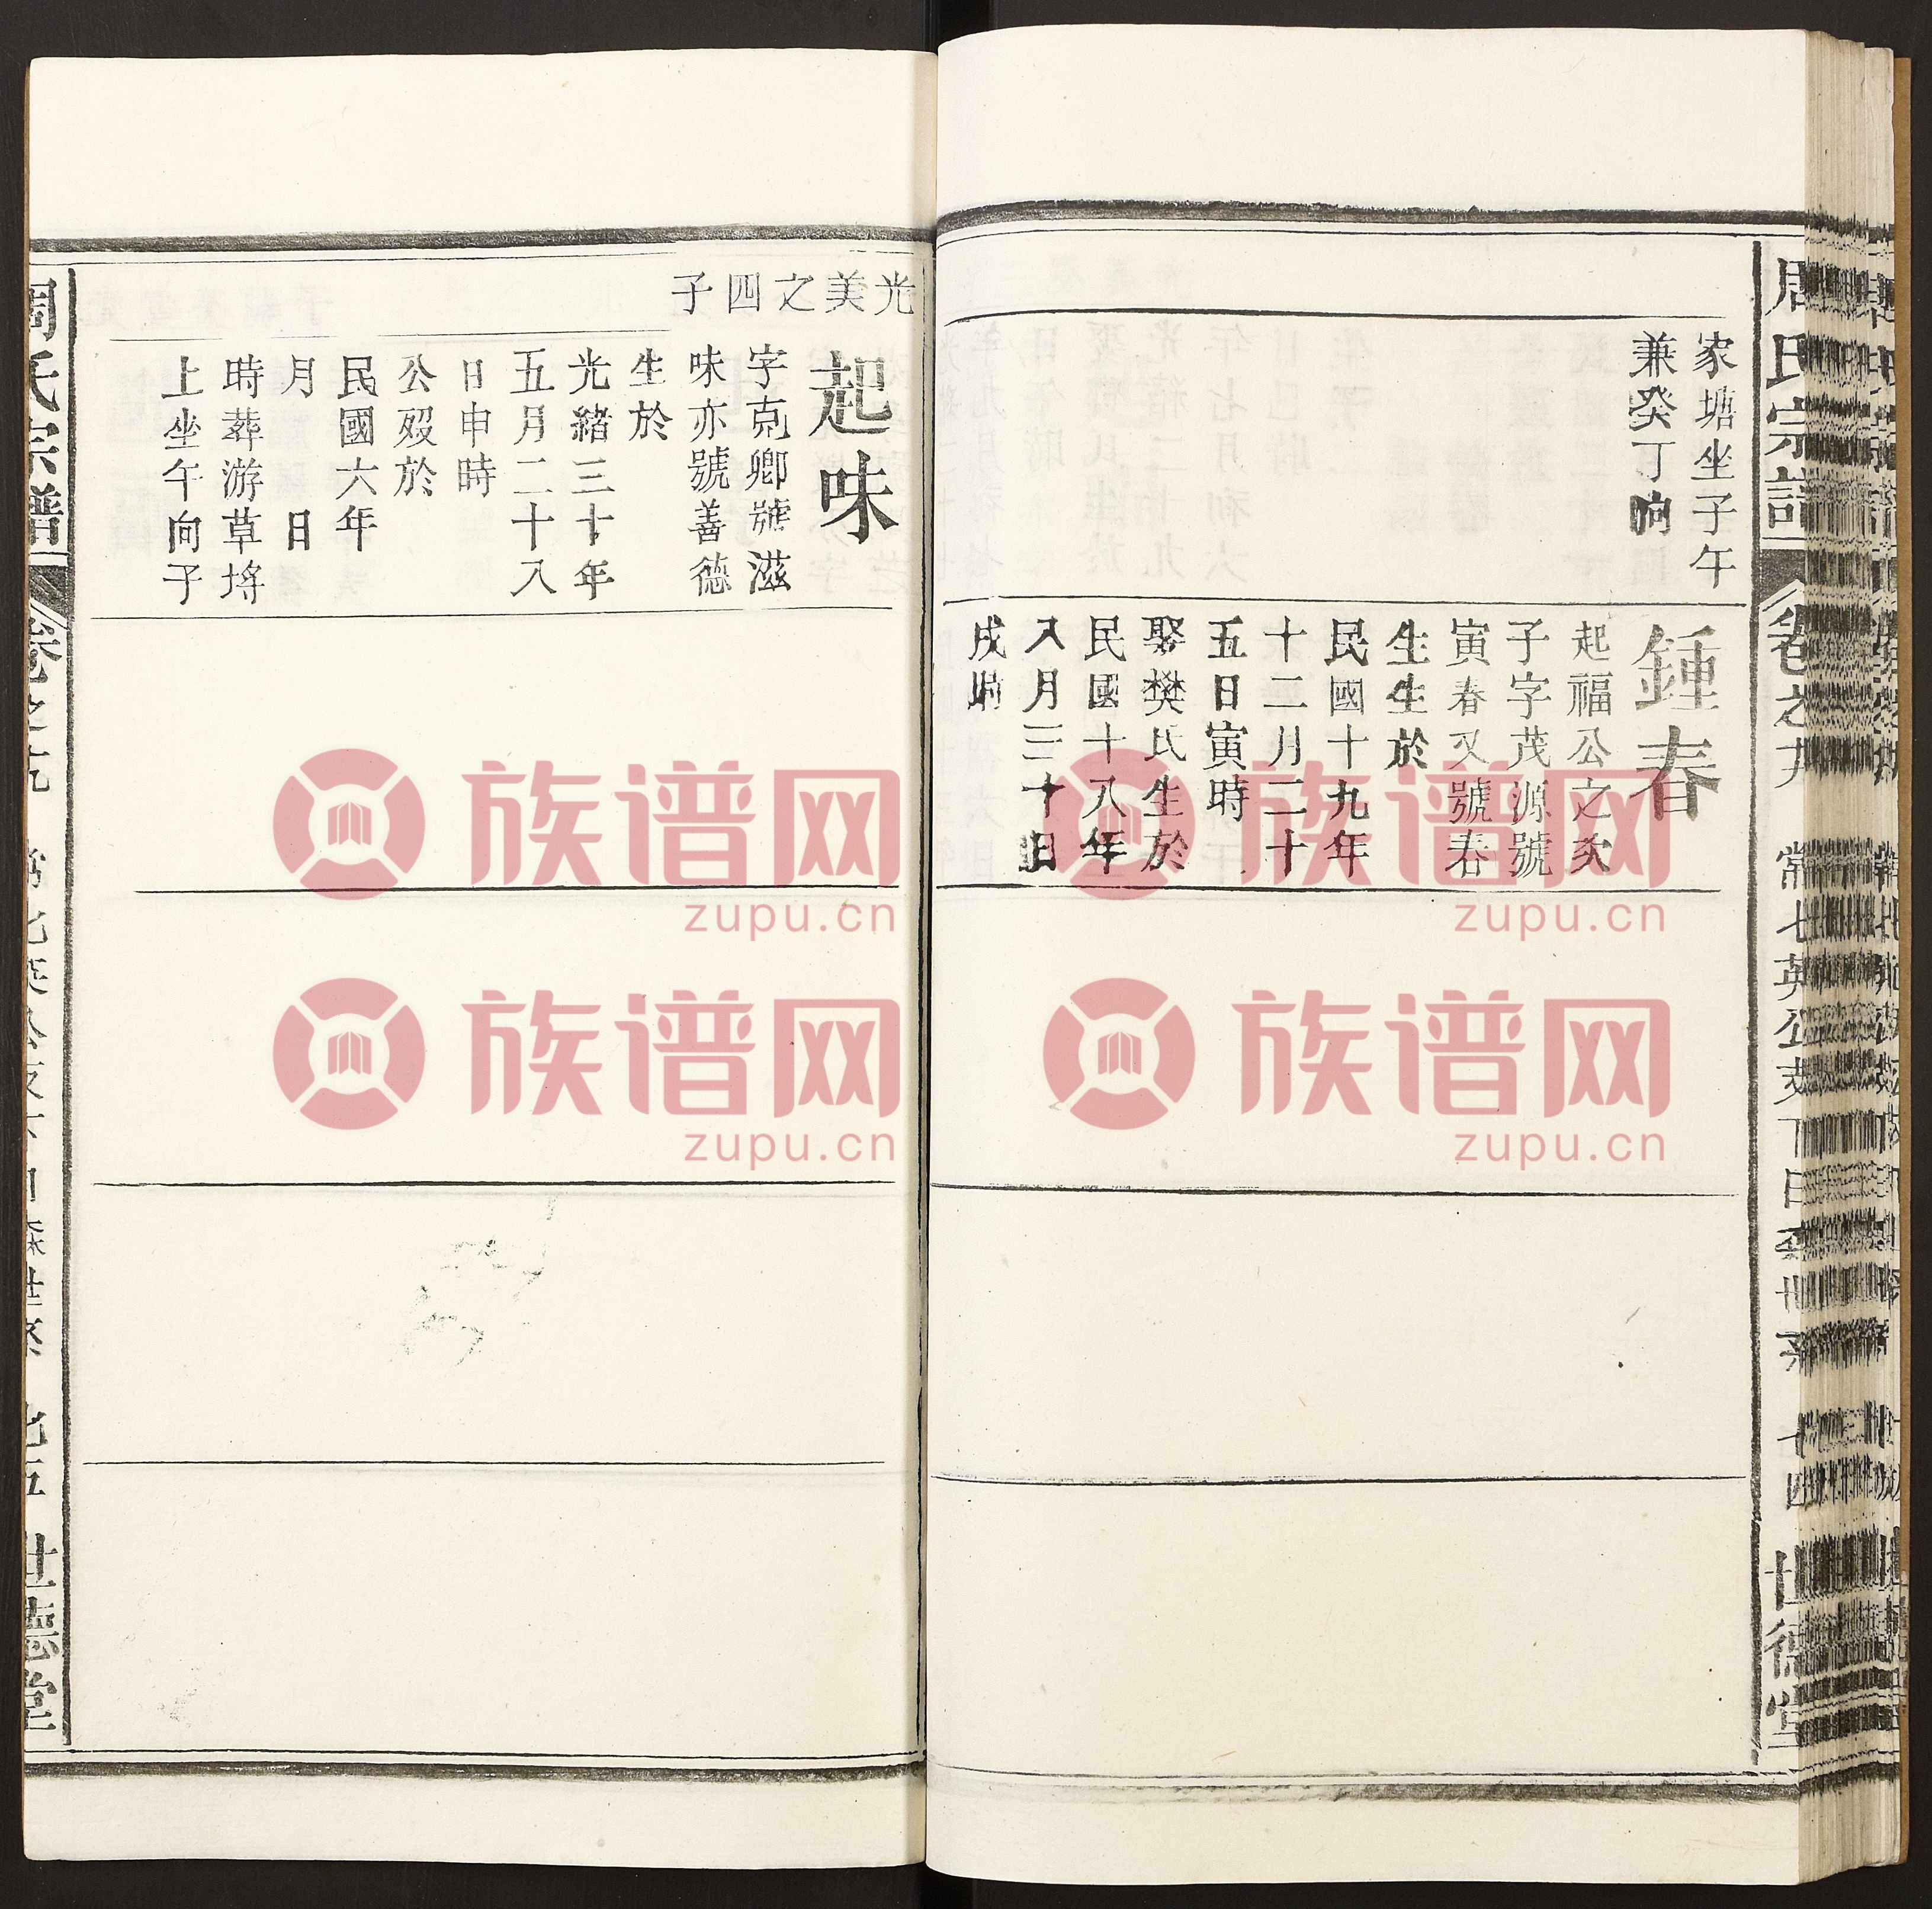 周氏宗譜
卷之
常七英公支下
世德堂
家塘坐子午
兼癸丁向
鍾春
起福公之次
子字茂源號
寅春又號春
生生於
民國十九年
十二月二十
五日寅時
娶樊氏生於
民國十八年
八月三十日
戌時
光美之四子
起味
字克卿號滋
味亦號善德
生於
光緒三十年
五月二十八
日申時
公歿於
民國六年
月 日
時葬游草垰
上坐午向子
周氏宗譜
卷之
世德堂
族谱网
zupu.cn
族谱网
zupu.cn
族谱网
zupu.cn
族谱网
zupu.cn